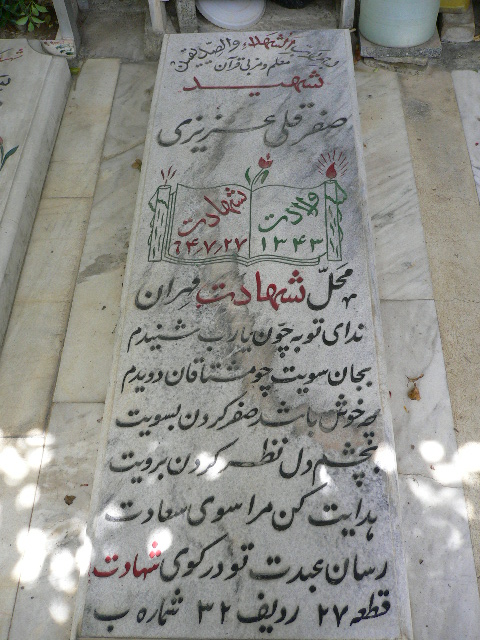 معلم و مربی قرآن
شهید
صفرقلی عزیزی
ولادت شهادت
۱۳۴۳ ۶۴٫۷٫۲۷
محلّ شهادت مهران
ندای توبه چون یا رب شنیدم
بجان سویت چو مشتاقان دویدم
چه خوش باشد صفر کردن بسویت
بچشم دل نظر کردن برویت
هدایت کن مرا سوی سعادت
رسان عبدت تو در کوی شهادت
قطعه ۲۷ ردیف ۳۲ شماره ب